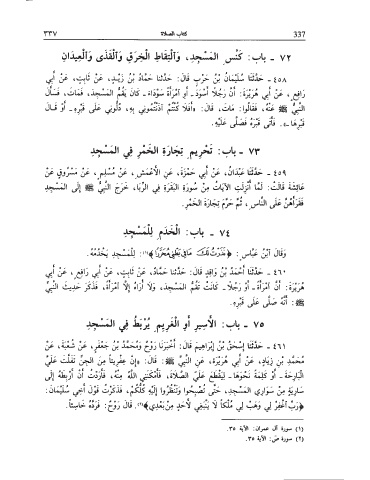 337 كتاب الصلاة ٣٣٧
٧٢ - باب: كَنْسِ المَسْجِدِ، وَالْتِقاطِ الْخِرَقِ وَالْقَذَى وَالْعِيدَانِ
٤٥٨ - حَدَّثَنَا سُلَيْمَانُ بْنُ حَرْبٍ قَالَ: حَدَّثَنَا حَمَّادُ بْنُ زَيْدٍ، عَنْ ثَابِتٍ، عَنْ أَبِي
رَافِعٍ، عَنْ أَبِي هُرَيْرَةَ: أَنَّ رَجُلًا أَسْوَدَ، أَوِ امْرَأَةً سَوْدَاءَ، كَانَ يَقُمُّ المَسْجِدَ، فَمَاتَ، فَسَأَلَ
النَّبِيُّ ﷺ عَنْهُ، فَقَالُوا: مَاتَ، قَالَ: «أَفَلَا كُنْتُمْ آذَنْتُمُونِي بِهِ، دُلُّونِي عَلَى قَبْرِهِ - أَوْ قَالَ
قَبْرِهَا». فَأَتَى قَبْرَهُ فَصَلَّى عَلَيْهِ.
٧٣ - باب: تَحْرِيمِ تِجَارَةِ الْخَمْرِ فِي المَسْجِدِ
٤٥٩ - حَدَّثَنَا عَبْدَانُ، عَنْ أَبِي حَمْزَةَ، عَنِ الْأَعْمَشِ، عَنْ مُسْلِمٍ، عَنْ مَسْرُوقٍ، عَنْ
عَائِشَةَ قَالَتْ: لَمَّا أُنْزِلَتِ الْآيَاتُ مِنْ سُورَةِ الْبَقَرَةِ فِي الرِّبَا، خَرَجَ النَّبِيُّ ﷺ إِلَى المَسْجِدِ
فَقَرَأَهُنَّ عَلَى النَّاسِ، ثُمَّ حَرَّمَ تِجَارَةَ الْخَمْرِ.
٧٤ - باب: الْخَدَمِ لِلْمَسْجِدِ
وَقَالَ ابْنُ عَبَّاسٍ: ﴿نَذَرْتُ لَكَ مَا فِي بَطْنِي مُحَرَّرًا﴾(١): لِلْمَسْجِدِ يَخْدُمُهُ.
٤٦٠ - حَدَّثَنَا أَحْمَدُ بْنُ وَاقِدٍ قَالَ: حَدَّثَنَا حَمَّادٌ، عَنْ ثَابِتٍ، عَنْ أَبِي رَافِعٍ، عَنْ أَبِي
هُرَيْرَةَ: أَنَّ امْرَأَةً - أَوْ رَجُلًا - كَانَتْ تَقُمُّ المَسْجِدَ، وَلَا أُرَاهُ إِلَّا امْرَأَةً، فَذَكَرَ حَدِيثَ النَّبِيِّ
ﷺ: أَنَّهُ صَلَّى عَلَى قَبْرِهِ.
٧٥ - باب: الْأَسِيرِ أَوِ الْغَرِيمِ يُرْبَطُ فِي المَسْجِدِ
٤٦١ - حَدَّثَنَا إِسْحَقُ بْنُ إِبْرَاهِيمَ قَالَ: أَخْبَرَنَا رَوْحٌ وَمُحَمَّدُ بْنُ جَعْفَرٍ، عَنْ شُعْبَةَ، عَنْ
مُحَمَّدِ بْنِ زِيَادٍ، عَنْ أَبِي هُرَيْرَةَ، عَنِ النَّبِيِّ ﷺ قَالَ: «إِنَّ عِفْرِيتًا مِنَ الْجِنِّ تَفَلَّتَ عَلَيَّ
الْبَارِحَةَ - أَوْ كَلِمَةً نَحْوَهَا - لِيَقْطَعَ عَلَيَّ الصَّلَاةَ، فَأَمْكَنَنِي اللَّهُ مِنْهُ، فَأَرَدْتُ أَنْ أَرْبِطَهُ إِلَى
سَارِيَةٍ مِنْ سَوَارِي المَسْجِدِ، حَتَّى تُصْبِحُوا وَتَنْظُرُوا إِلَيْهِ كُلُّكُمْ، فَذَكَرْتُ قَوْلَ أَخِي سُلَيْمَانَ:
﴿رَبِّ اغْفِرْ لِي وَهَبْ لِي مُلْكًا لَا يَنْبَغِي لِأَحَدٍ مِنْ بَعْدِي﴾(٢). قَالَ رَوْحٌ: فَرَدَّهُ خَاسِئًا.
(١) سورة آل عمران: الآية ٣٥.
(٢) سورة ص: الآية ٣٥.